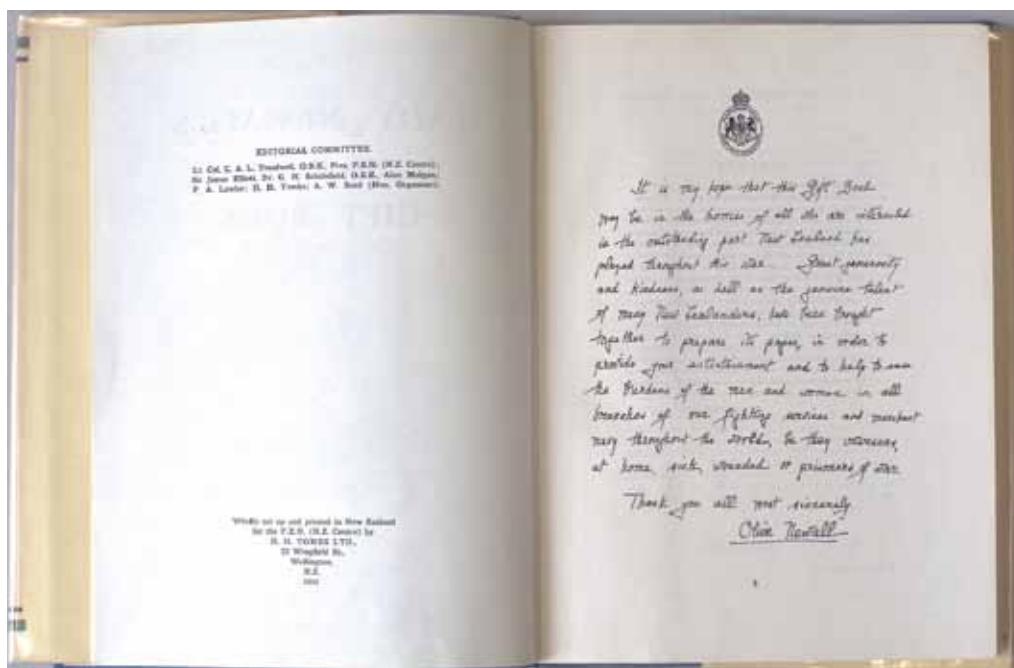 EDITORIAL COMMITTEE.
Lt Col. E. A. L. Treadwell, O.B.E., Pres. P.E.N. (N.Z. Centre);
Sir James Elliott, Dr. G. H. Scholefield, O.B.E., Alan Mulgan,
P. A. Lawlor; H. H. Tombs; A. W. Reed (Hon. Organiser).
Wholly set up and printed in New Zealand
for the P.E.N. (N.Z. Centre) by
H. H. TOMBS LTD.,
22 Wingfield St.,
Wellington,
N.Z.
It is my hope that this Gift Book
may be in the homes of all who are interested
in the outstanding part New Zealand has
played throughout this war. Great generosity
and kindness, as well as the genuine talent
of many New Zealanders, have been brought
together to prepare its pages, in order to
provide your entertainment and to help to ease
the burdens of the men and women in all
branches of our fighting services and merchant
navy throughout the world, be they overseas,
at home, sick, wounded or prisoners of war.
Thank you all most sincerely
Olive Newall